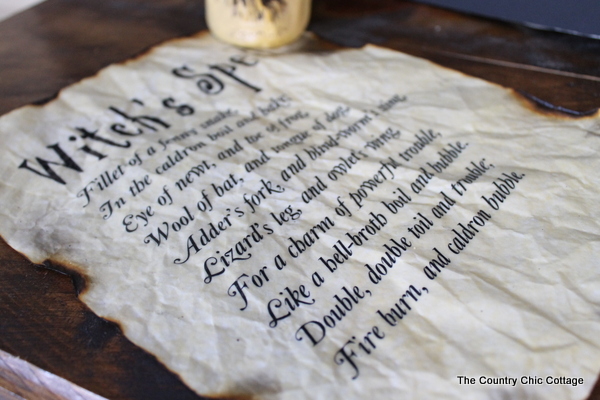 Witch's Spe
Fillet of a fenny snake,
In the caldron boil and bake;
Eye of newt, and toe of frog,
Wool of bat, and tongue of dog,
Adder's fork, and blind-worm's sting,
Lizard's leg, and owlet's wing,
For a charm of powerful trouble,
Like a hell-broth boil and bubble.
Double, double toil and trouble;
Fire burn, and caldron bubble.
The Country Chic Cottage